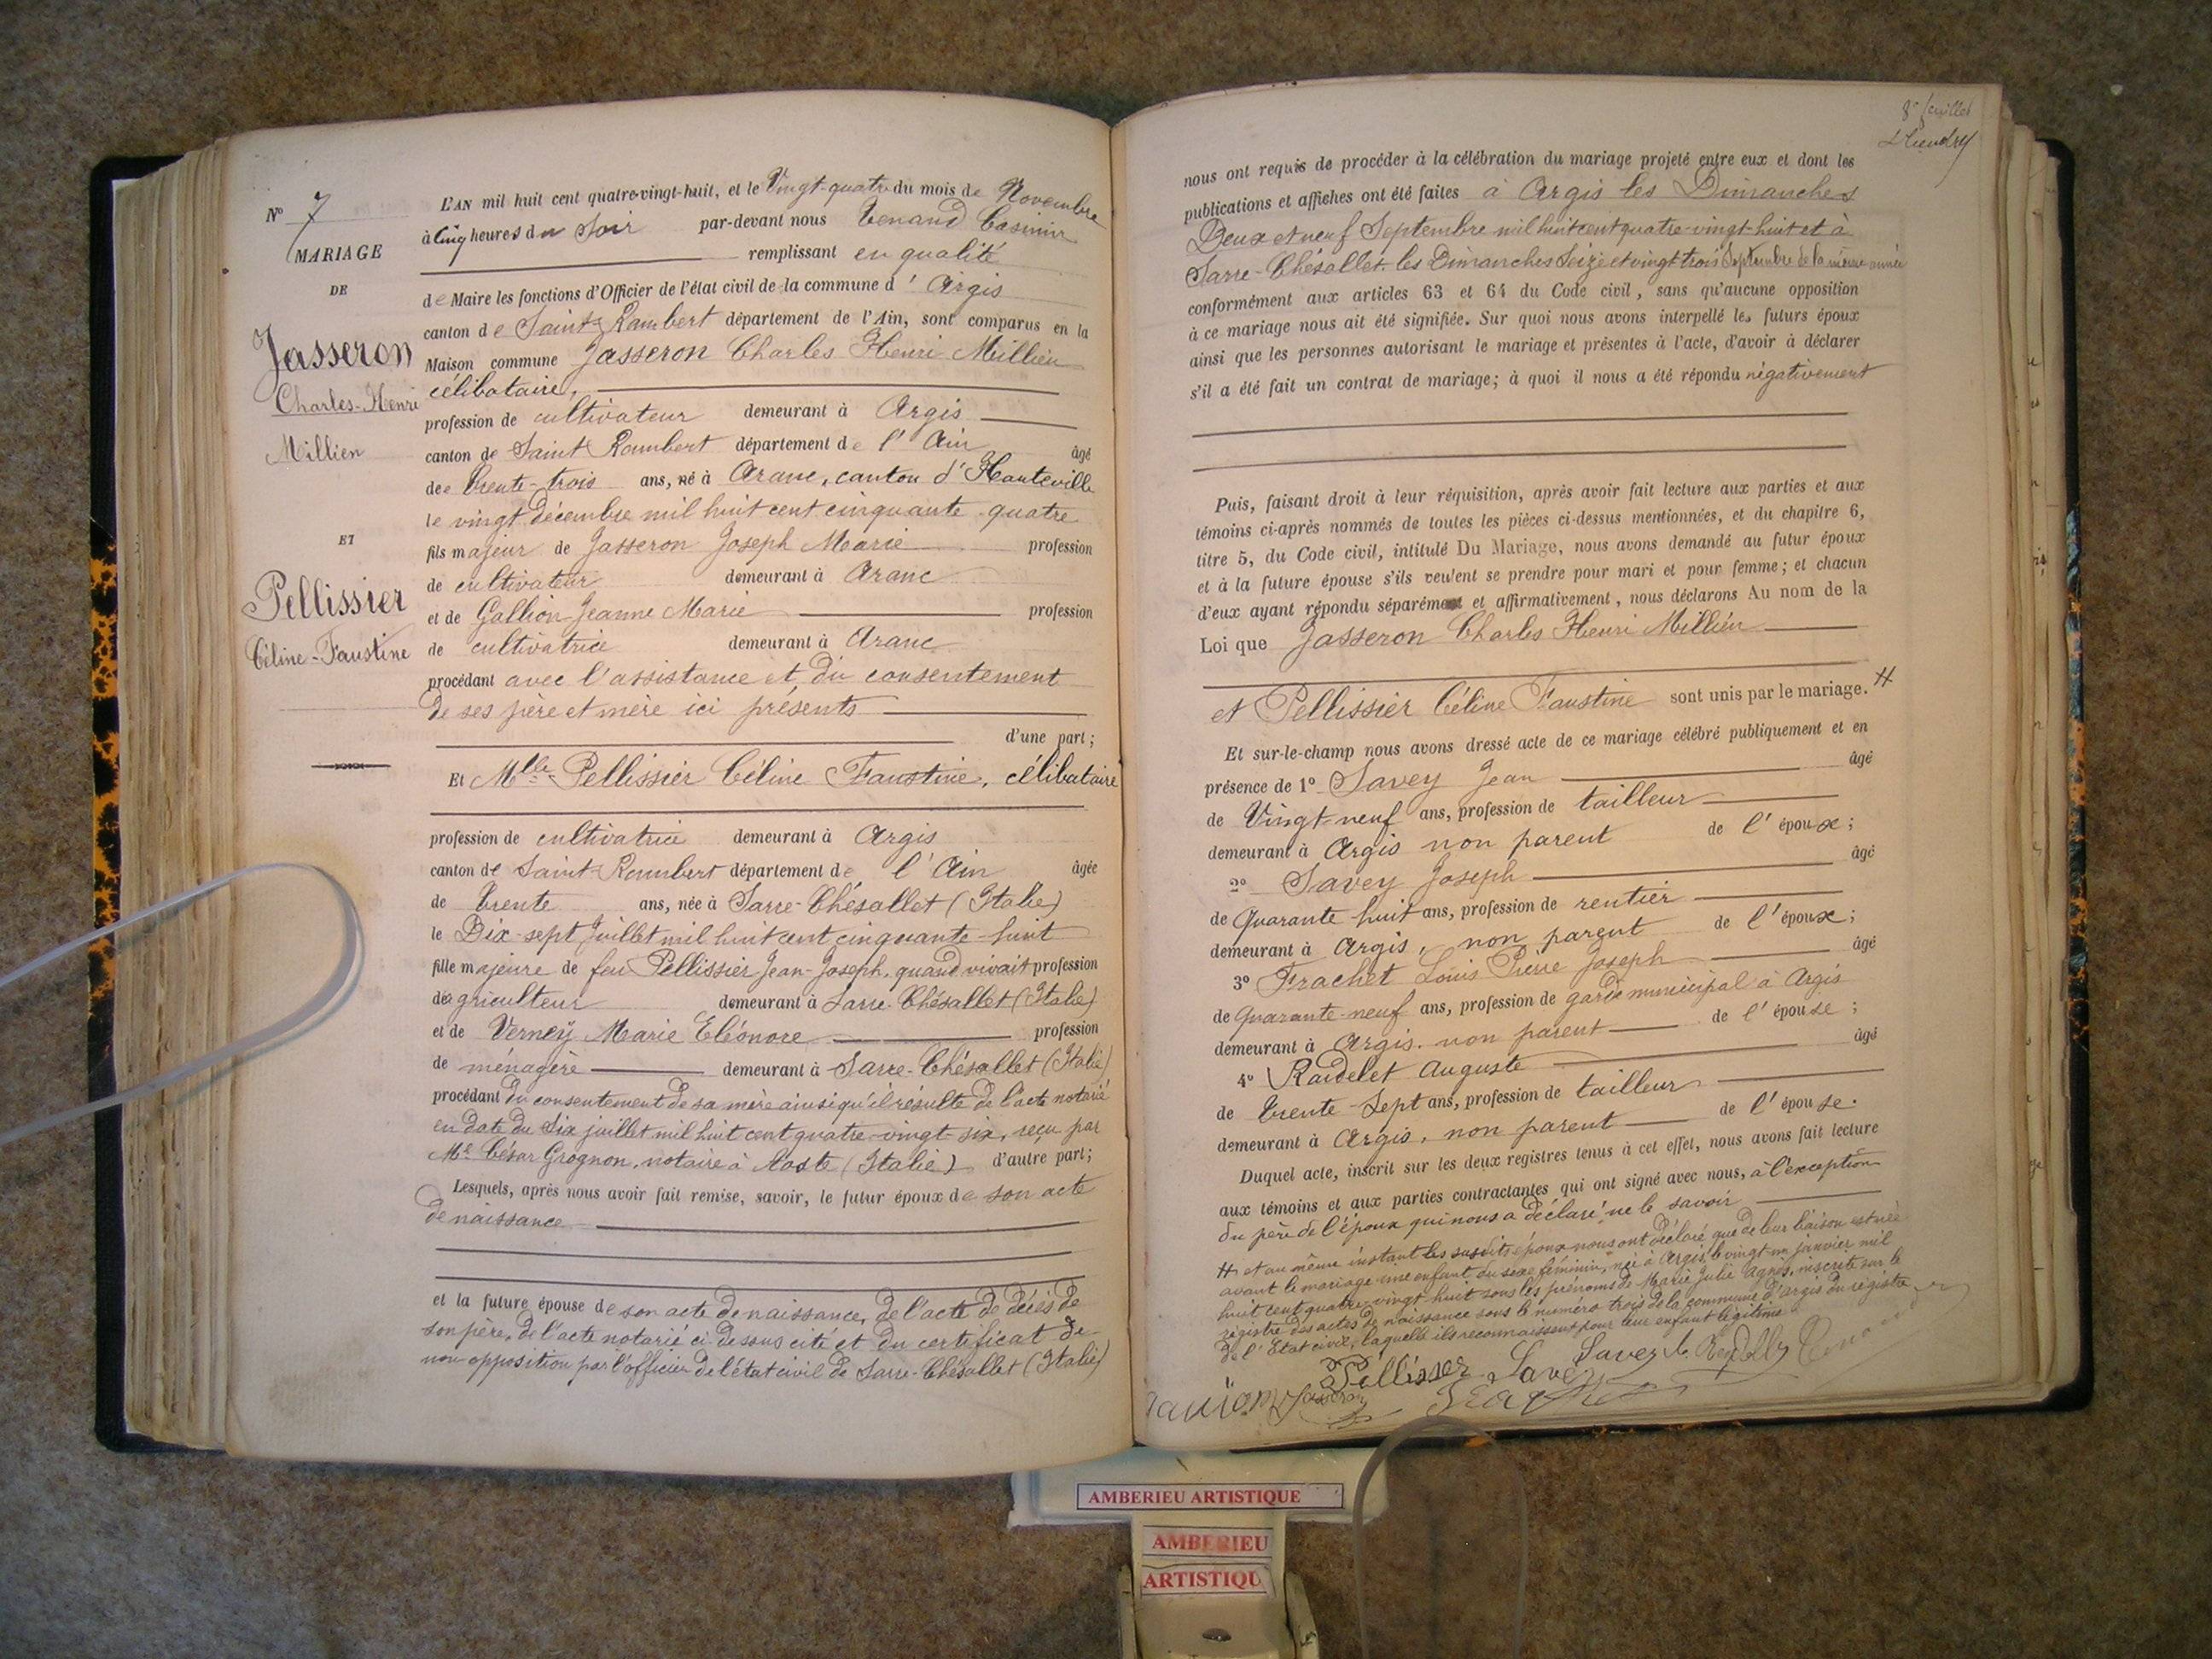 N° 7
MARIAGE
DE
Jasseron
Charles-Henri
Millien
ET
Pellissier
Céline-Faustine
L'AN mil huit cent quatre-vingt-huit, et le Vingt-quatre du mois de Novembre
à Cinq heures du Soir par-devant nous Tenand Casimir
remplissant en qualité
de Maire les fonctions d'Officier de l'état civil de la commune d'Argis
canton de Saint-Rambert département de l'Ain, sont comparus en la
Maison commune Jasseron Charles Henri Millien
célibataire,
profession de cultivateur demeurant à Argis
canton de Saint Rambert département de l'Ain âgé
de trente-trois ans, né à Aranc, canton d'Hauteville
le vingt décembre mil huit cent cinquante-quatre
fils majeur de Jasseron Joseph Marie profession
de cultivateur demeurant à Aranc
et de Gallion Jeanne Marie profession
de cultivatrice demeurant à Aranc
procédant avec l'assistance et du consentement
de ses père et mère ici présents
d'une part;
Et Mlle Pellissier Céline Faustine, célibataire
profession de cultivatrice demeurant à Argis
canton de Saint-Rambert département de l'Ain âgée
de trente ans, née à Sarre-Chésallet (Italie)
le Dix-sept Juillet mil huit cent cinquante-huit
fille majeure de feu Pellissier Jean-Joseph, quand vivait profession
de agriculteur demeurant à Sarre-Chésallet (Italie)
et de Verney Marie Eléonore profession
de ménagère demeurant à Sarre-Chésallet (Italie)
procédant du consentement de sa mère ainsi qu'il résulte de l'acte notarié
en date du Six juillet mil huit cent quatre-vingt-six, reçu par
Me César Grognon, notaire à Aoste (Italie) d'autre part;
Lesquels, après nous avoir fait remise, savoir, le futur époux de son acte
de naissance
et la future épouse de son acte de naissance, de l'acte de décès de
son père, de l'acte notarié ci-dessus cité et du certificat de
non opposition par l'officier de l'état civil de Sarre-Chésallet (Italie)
8e feuillet
nous ont requis de procéder à la célébration du mariage projeté entre eux et dont les
publications et affiches ont été faites à Argis les Dimanches
Deux et neuf Septembre mil huit cent quatre-vingt-huit et à
Sarre-Chésallet les Dimanches Seize et vingt trois Septembre de la même année
conformément aux articles 63 et 64 du Code civil, sans qu'aucune opposition
à ce mariage nous ait été signifiée. Sur quoi nous avons interpellé les futurs époux
ainsi que les personnes autorisant le mariage et présentes à l'acte, d'avoir à déclarer
s'il a été fait un contrat de mariage; à quoi il nous a été répondu négativement
Puis, faisant droit à leur réquisition, après avoir fait lecture aux parties et aux
témoins ci-après nommés de toutes les pièces ci-dessus mentionnées, et du chapitre 6,
titre 5, du Code civil, intitulé Du Mariage, nous avons demandé au futur époux
et à la future épouse s'ils veulent se prendre pour mari et pour femme; et chacun
d'eux ayant répondu séparément et affirmativement, nous déclarons Au nom de la
Loi que Jasseron Charles Henri Millien
et Pellissier Céline Faustine sont unis par le mariage. #
Et sur-le-champ nous avons dressé acte de ce mariage célébré publiquement et en
présence de 1° Savey Jean âgé
de Vingt-neuf ans, profession de tailleur
demeurant à Argis non parent de l'époux;
2° Savey Joseph âgé
de Quarante huit ans, profession de rentier
demeurant à Argis, non parent de l'époux;
3° Frachet Louis Pierre Joseph âgé
de Quarante-neuf ans, profession de garde municipal à Argis
demeurant à Argis. non parent de l'épouse;
4° Raudelet Auguste âgé
de trente-sept ans, profession de tailleur
demeurant à Argis, non parent de l'épouse.
Duquel acte, inscrit sur les deux registres tenus à cet effet, nous avons fait lecture
aux témoins et aux parties contractantes qui ont signé avec nous, à l'exception
du père de l'époux qui nous a déclaré ne le savoir
# et au même instant les susdits époux nous ont déclaré que de leur liaison est née
avant le mariage une enfant du sexe féminin, née à Argis, le vingt-un janvier mil
huit cent quatre-vingt-huit sous les prénoms de Marie Julie Agnès, inscrite sur le
registre des actes de naissance sous le numéro trois de la commune d'Argis du registre
de l'Etat civil, laquelle ils reconnaissent pour leur enfant légitime
Savey
Pellisier Savey
Jasseron
AMBERIEU ARTISTIQUE
AMBERIEU
ARTISTIQU